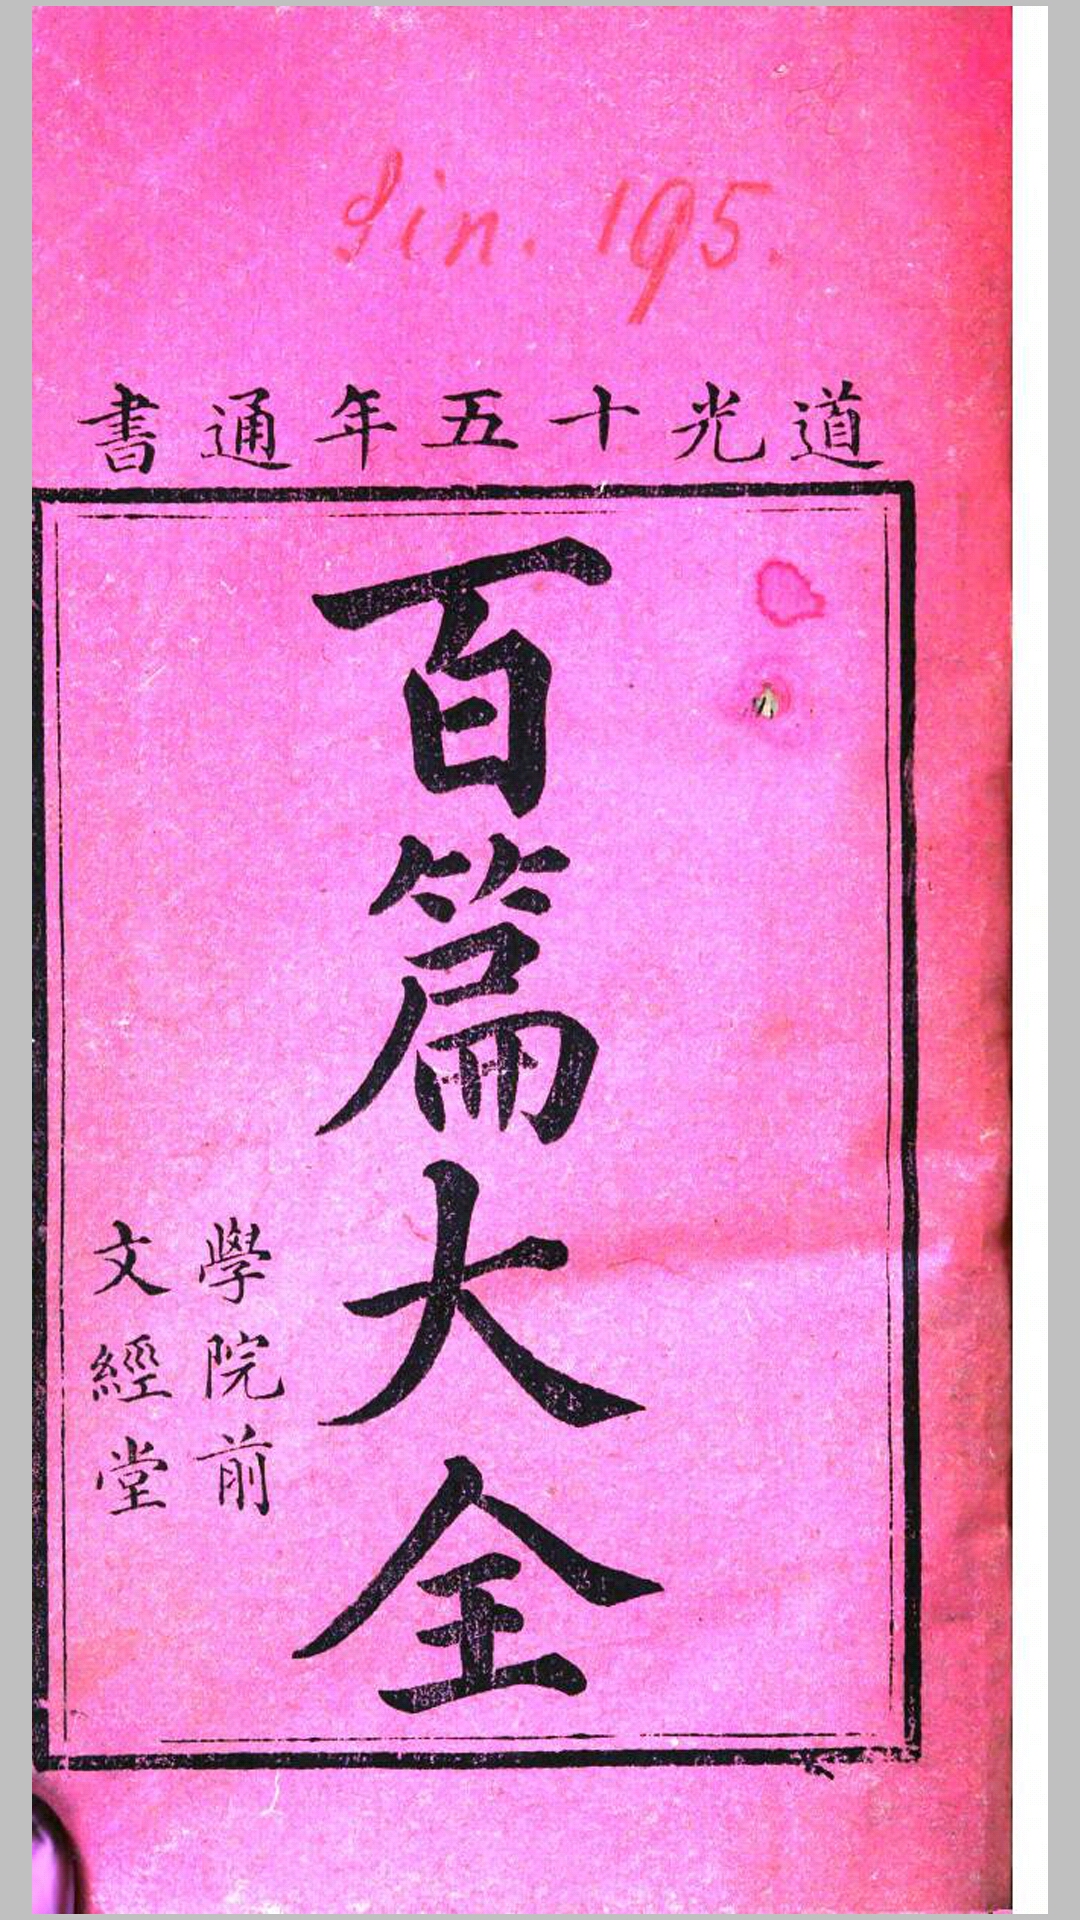 Sin. 195.
道光十五年通書
百篇大全
學院前
文經堂